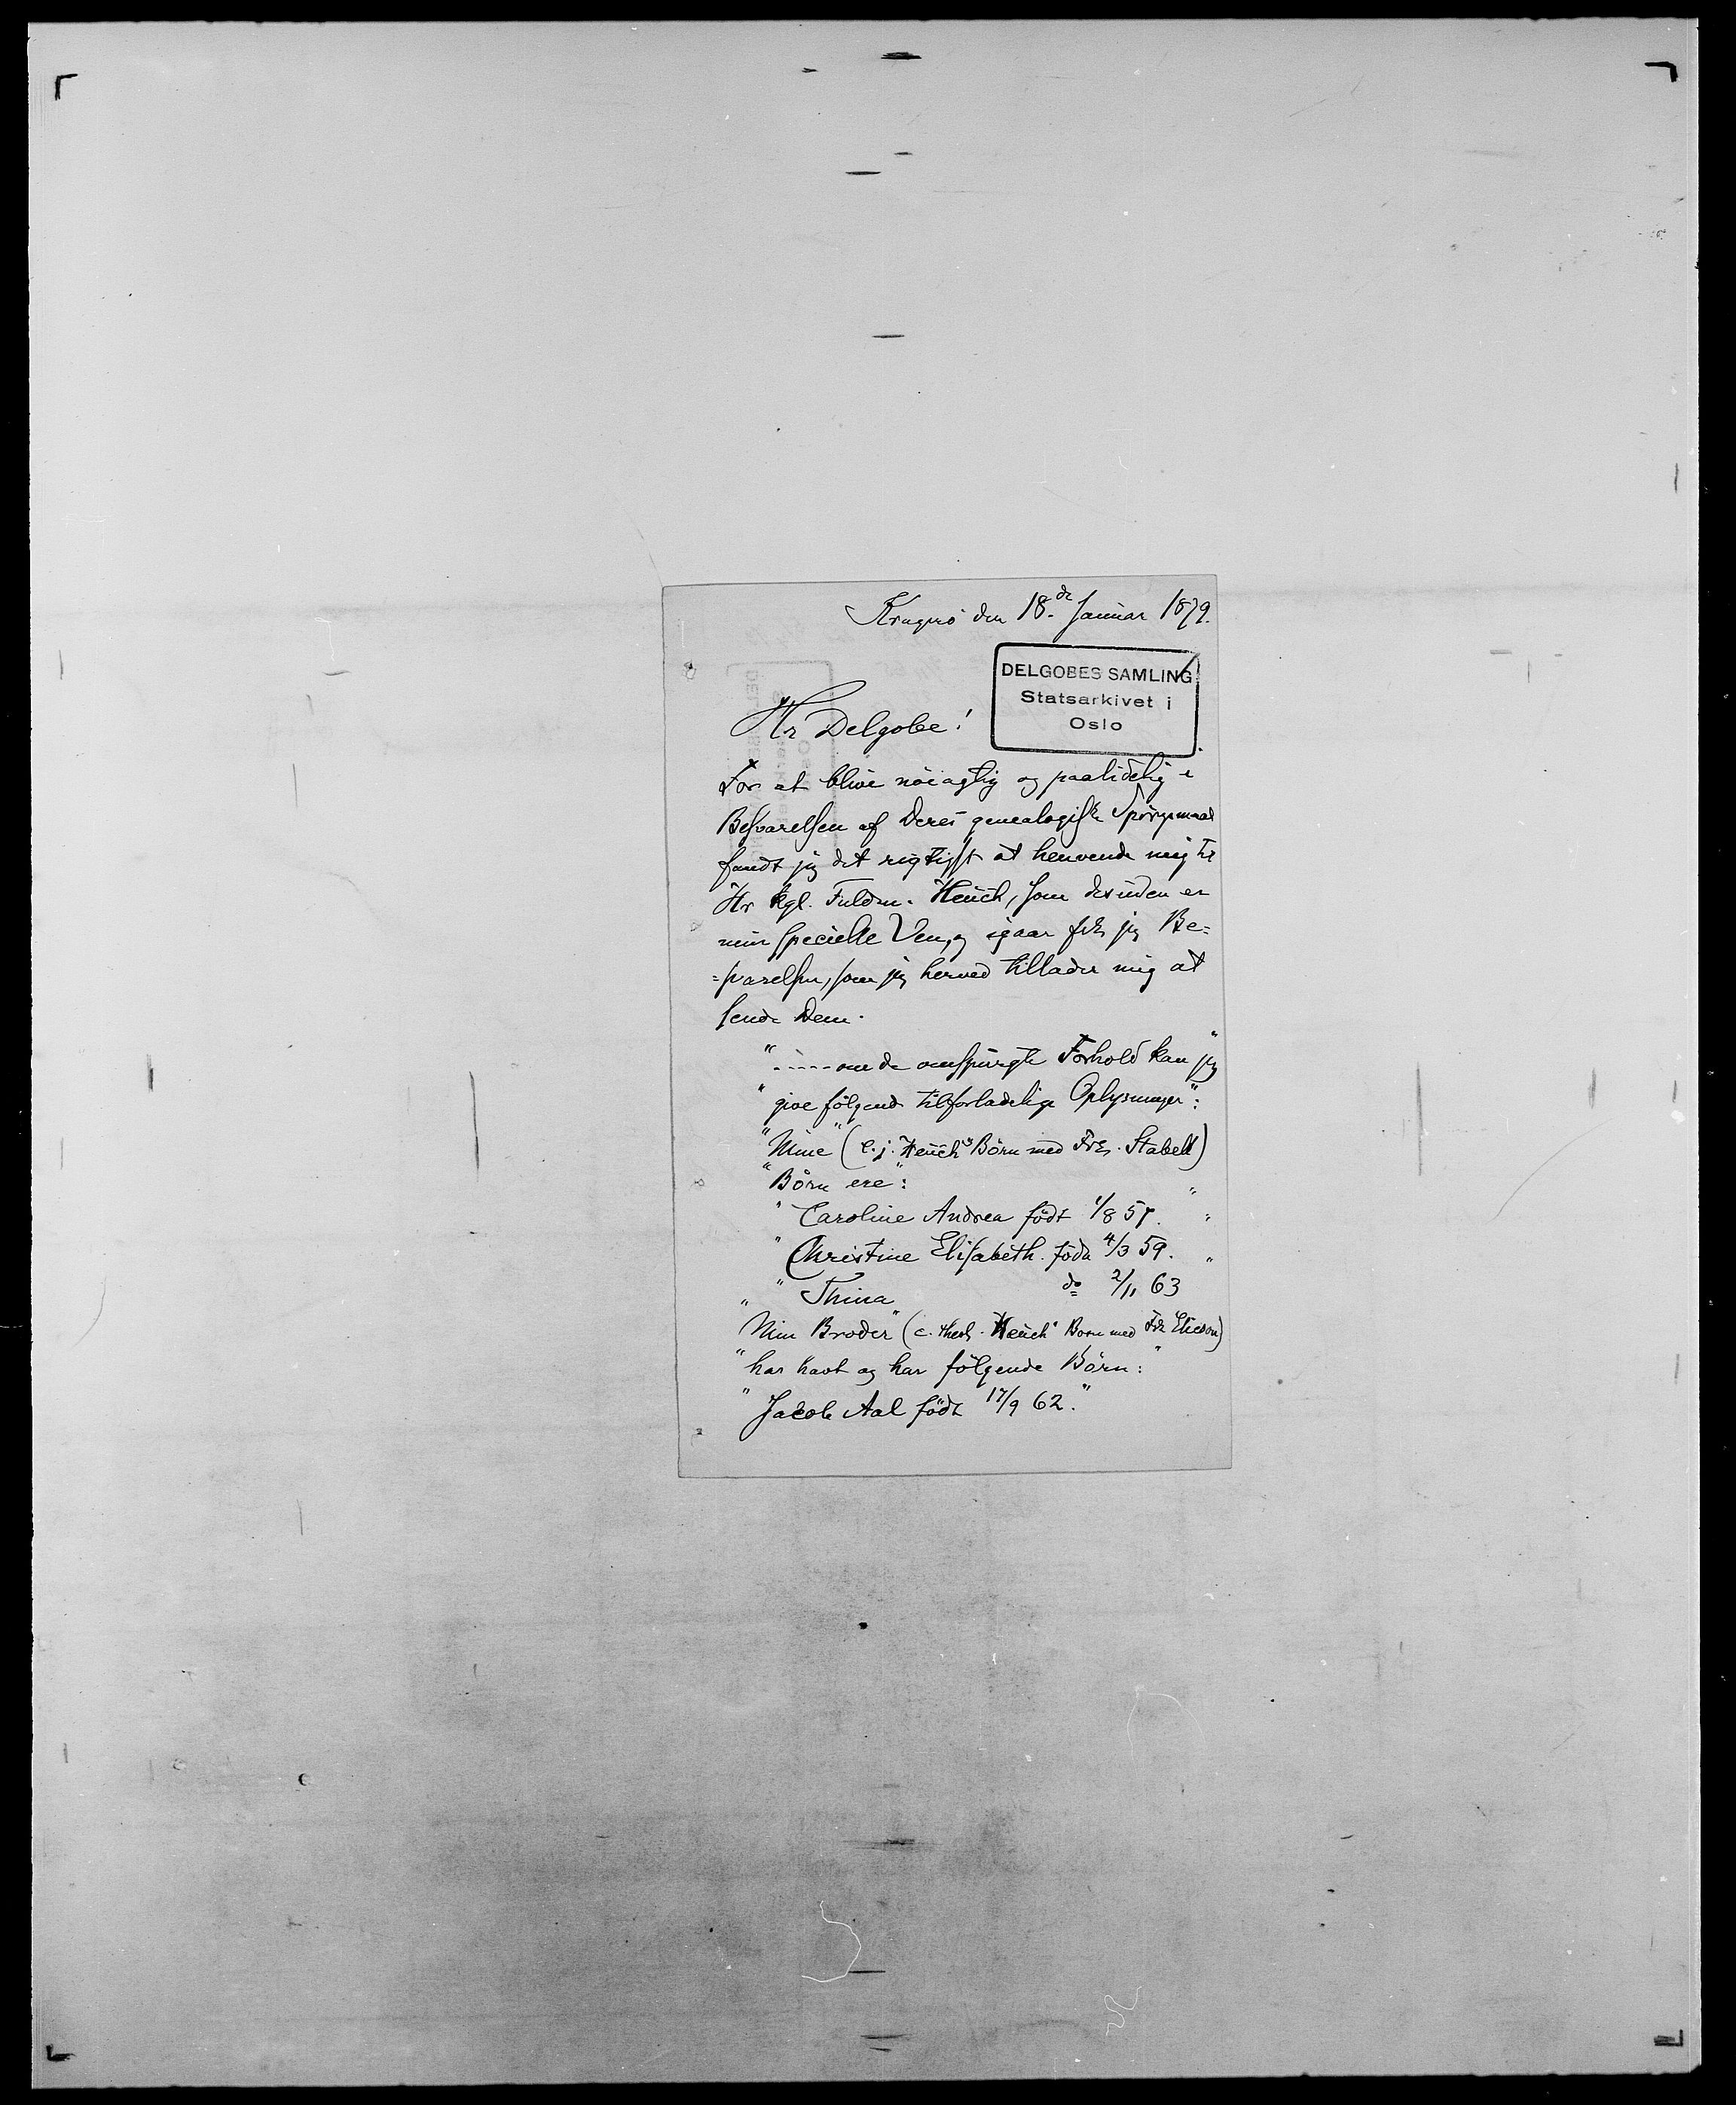 Kragerö den 18.de Januar 1879.
DELGOBES SAMLING
Statsarkivet i
Oslo
Hr Delgobe!
For at blive nöiagtig og paalidelig i
Besvarelsen af Deres genealogiske Spörgsmaal
fandt jeg det rigtigst at henvende mig til
Hr kgl. Fuldm. Heuch, som desuden er
min specielle Ven, og igaar fik jeg Be=
=svarelsen, som jeg herved tillader mig at
sende Dem.
"-----om de omspurgte Forhold kan jeg"
"give fölgende tilforladelige Oplysninger":
"Mine" (c. j. Heuch's Börn med Frk. Stabell)
"Börn ere":
" Caroline Andrea födt 1/8 57. "
" Christine Elisabeth. födt 4/3 59. "
" " Thina do 2/11 63
"Min Broder" (c. theol. Heuch's Börn med Frk Elieson)
"har havt og har fölgende Börn:"
" Jacob Aal födt 17/9 62."